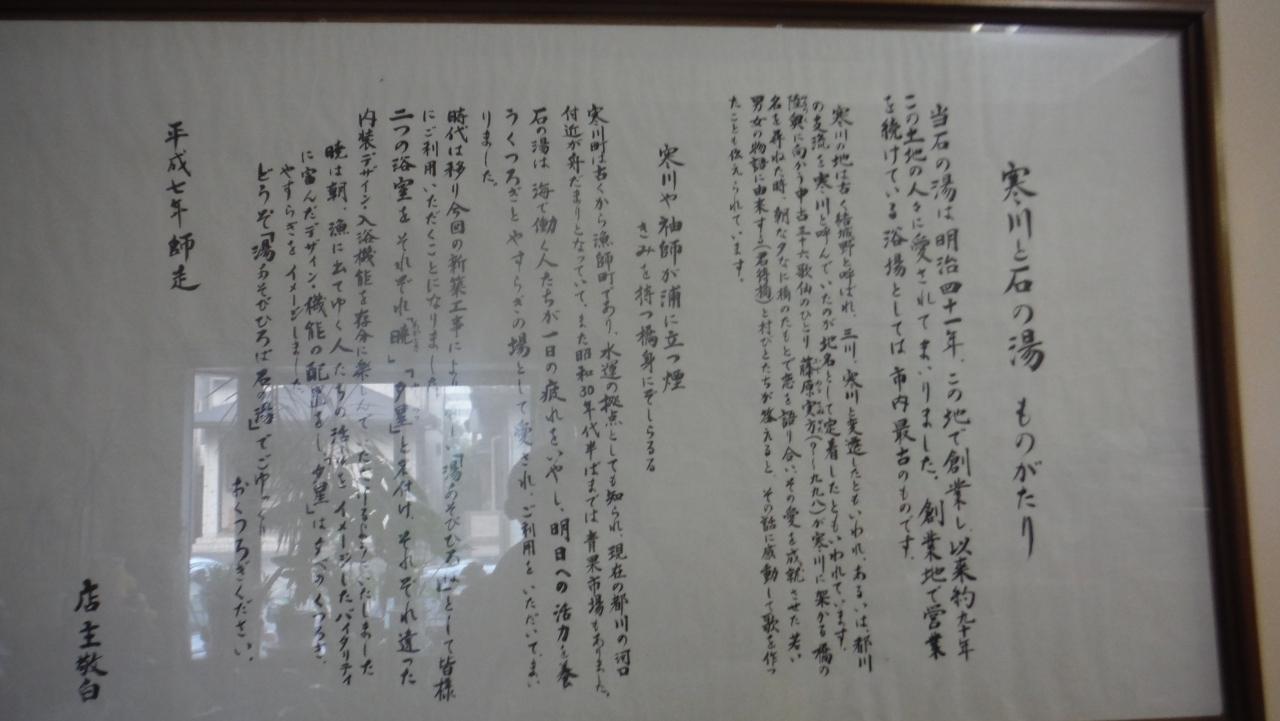 寒川と石の湯 ものがたり
当石の湯は明治四十一年、この地で創業し、以来約九十年
この土地の人々に愛されてまいりました。創業地で営業
を続けている浴場としては市内最古のものです。
寒川の地は古く結城野と呼ばれ、三川、寒川と変遷したともいわれ、あるいは都川
の支流を寒川と呼んでいたのが地名として定着したともいわれています。
陸奥に向かう中古三十六歌仙のひとり藤原実方(?〜九九八)が寒川に架かる橋の
名を尋ねた時、朝な夕なに橋のたもとで恋を語り合い、その愛を成就させた若い
男女の物語に由来する(君待橋)と村びとたちが答えると、その話に感動して歌を作っ
たことも伝えられています。
寒川や袖師が浦に立つ煙
きみを待つ橋身にぞしらるる
寒川町は古くから漁師町であり、水運の拠点としても知られ、現在の都川の河口
付近が舟だまりとなっていて、また昭和30年代半ばまでは青果市場もありました。
石の湯は 海で働く人たちが一日の疲れをいやし、明日への活力を養
うくつろぎとやすらぎの場として愛され、ご利用をいただいてまい
りました。
時代は移り今回の新築工事により「湯あそびひろば」として皆様
にご利用いただくことになりました。
二つの浴室を それぞれ「暁」「夕星」と名付け、それぞれ違った
内装デザイン入浴機能を存分に楽しんでいただけるようにいたしました
暁は朝、漁に出てゆく人たちの活気をイメージしたバイタリティ
に富んだデザイン、機能の配置をし、夕星」は夕べのくつろぎ、
やすらぎをイメージしました
どうぞ「湯あそびひろば石の湯」でごゆっくり
おくつろぎください。
平成七年師走
店主敬白